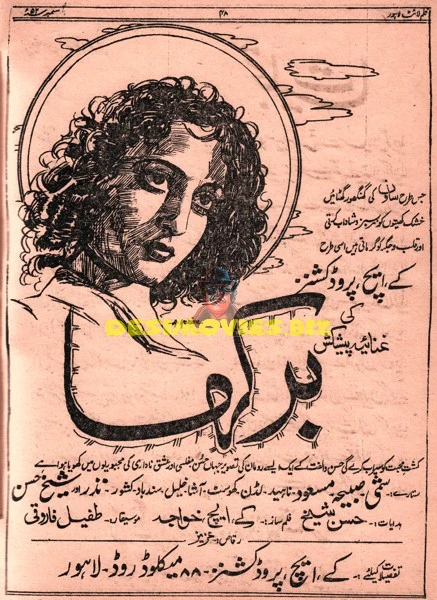 فلم لائٹ لاہور ۴۸
جس طرح ساون کی گھنگھور گھٹائیں
خشک کھیتوں کو سرسبز و شاداب کرتی
اور قلب و جگر کو گرماتی ہیں اسی طرح
کے، ایچ، پروڈکشنز
کی
غنائیہ پیشکش
DESIMOVIES.BIZ
برکھا
کشتِ محبت کو سیراب کرے گی حسن و الفت کے ایک ایسے رومان کی تصویر جہاں حسن مفلسی اور عشق ناداری کی مجبوریوں میں کھویا ہوا ہے
ستارے:۔ شمی صبیحہ مسعود ناہید۔ لڈن۔ گھوسٹ۔ آشا۔ خلیل۔ کشور۔ نذر اور شیخ حسن
ہدایات:۔ حسن شیخ فلمساز:۔ کے، ایچ خواجہ موسیقار:۔ طفیل فاروقی
رقاص:۔ عزیز
تفصیلات کیلئے:۔ کے، ایچ، پروڈکشنز۔ ۸۸ میکلوڈ روڈ۔ لاہور